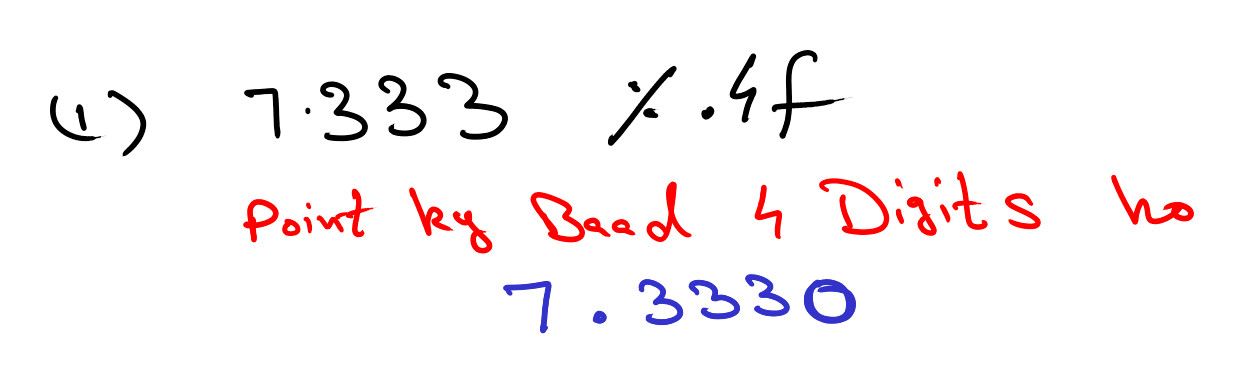 (1) 7.333 %.4f
Point ky Baad 4 Digits ho
7.3330